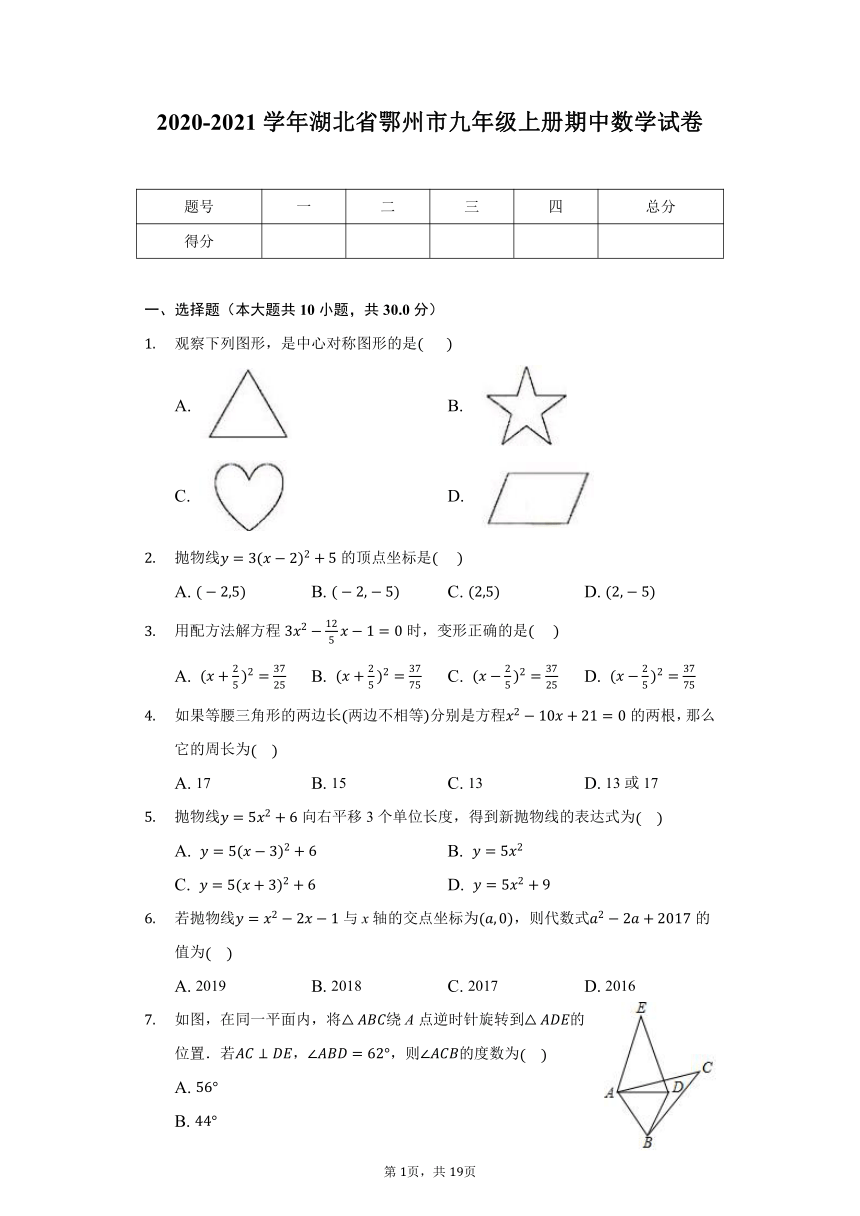 2020-2021学年湖北省鄂州市九年级上册期中数学试卷
题号 一 二 三 四 总分
得分
一、选择题（本大题共10小题，共30.0分）
1. 观察下列图形，是中心对称图形的是( )
A. B.
C. D.
2. 抛物线y = 3(x − 2)² + 5的顶点坐标是( )
A. (−2,5) B. (−2,−5) C. (2,5) D. (2,−5)
3. 用配方法解方程3x² − 12/5 x − 1 = 0时，变形正确的是( )
A. (x + 2/5)² = 37/25 B. (x + 2/5)² = 37/75 C. (x − 2/5)² = 37/25 D. (x − 2/5)² = 37/75
4. 如果等腰三角形的两边长(两边不相等)分别是方程x² − 10x + 21 = 0的两根，那么
它的周长为( )
A. 17 B. 15 C. 13 D. 13或17
5. 抛物线y = 5x² + 6向右平移3个单位长度，得到新抛物线的表达式为( )
A. y = 5(x − 3)² + 6 B. y = 5x²
C. y = 5(x + 3)² + 6 D. y = 5x² + 9
6. 若抛物线y = x² − 2x − 1与x轴的交点坐标为(a,0)，则代数式a² − 2a + 2017的
值为( )
A. 2019 B. 2018 C. 2017 D. 2016
7. 如图，在同一平面内，将△ABC绕A点逆时针旋转到△ADE的
位置．若AC ⊥ DE，∠ABD = 62°，则∠ACB的度数为( )
A. 56°
B. 44°
E
C
A
D
B
第1页，共19页